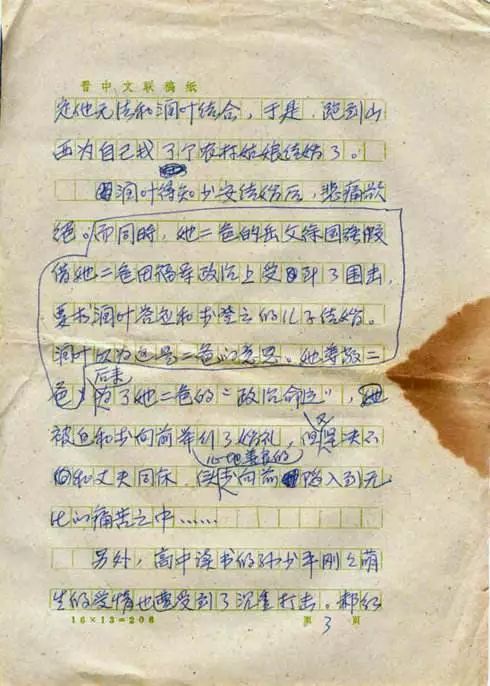 晋中文联稿纸
定他无法和润叶结合，于是，跑到山
西为自己找了个农村姑娘结婚了。
润叶得知少安结婚后，悲痛欲
绝。而同时，她二爸的岳父徐国强假
借她二爸田福军政治上受到了围击，
要求润叶答应和李登云的儿子结婚。
润叶以为这是二爸的意思。她尊敬二
爸，后来为了她二爸的“政治命运”，
被迫和李向前举行了婚礼，但又坚决不
和丈夫同床，使心地善良的李向前陷入到无
比的痛苦之中……
另外，高中读书的孙少平刚刚萌
生的爱情也遭受到了沉重打击。郝红
16×13=208
第 3 页